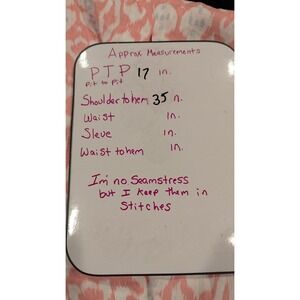 Approx Measurements
PTP 17 in.
Pit to Pit
Shoulder to hem 35 n.
Waist in.
Sleve in.
Waist to hem in.
I'm no Seamstress
but I keep them in
Stitches